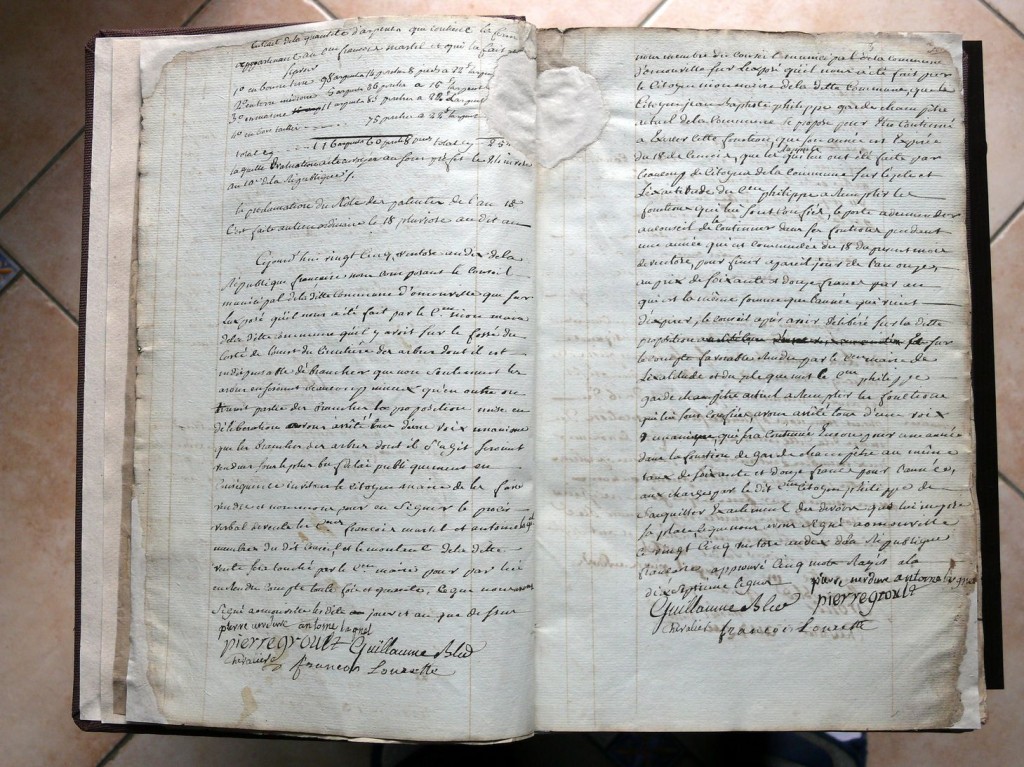 Extrait de la quantité d'arpents que contient la ferme
appartenant au cen françois martel et qu'il fait
1° en labourline 98 arpents 14 perches 8 pieds a 22 l'arpent
2° en terre mediocre 5 arpents 86 perches a 16 l'arpent
3° en masure 11 arpents 85 perches a 22 l'arpent
4° en bois taillis 75 perches a 22 l'arpent
total cy 116 arpents 60 perches 8 pieds total cy
la quelle Evaluation
au 10e de la République /.
la proclamation du Rôle des patentes de l'an 10
C'est faite au lieu ordinaire le 18 pluviose au dit an
Cejourd'hui vingt Cinq ventose an dix de la
République française nous composant le Conseil
municipal de la ditte Commune d'omonville que sur
L'exposé qu'il nous a été fait par le Cen mon maire
de la ditte Commune qu'il y avoit sur le fossé du
Costé de Court du Cimetiere des arbres dont il est
indispensable d'ébrancher que non seulement les
arbres en seroient beaucoup mieux qu'en outre on
tireroit partie des branches la proposition mise en
délibération avons arrêté tous d'une voix unanime
que les branches des arbres dont il S'agit seroient
vendues au plus bref délai publiquement en
Conséquence invitons le Citoyen maire de les faire
vendre et nommons pour en Signer le procès
verbal de vente les Cens françois martel et antoine
membres du dit Conseil et le montant de la ditte
vente sera touché par le Cen maire pour par lui
en tendre Compte toute fois et quantes, Ce que nous avons
Signé a omonville les dits jour et an que dessus
pierre verdure antoine
pierre groult Guillaume Blid
Chevalier françois Lourette
nous membre du conseil municipal de la commune
d'omonville sur l'exposé qu'il nous a été fait par
le Citoyen mon maire de la ditte Commune, que le
Citoyen jean Baptiste philippe garde champêtre
actuel de la Commune se propose pour être Continué
a Exercer cette fonction, que son année est Expirée
du 18 de Ce mois, que les
beaucoup de Citoyens de la commune sur le zele et
L'exactitude du Cen philippe a Remplir les
fonctions qui lui sont confiées, le porte a demander
au conseil de le Continuer dans ses fonctions pendant
une année qui est commencée du 18 du present mois
de ventose, pour finir a pareil jour de l'an onze,
au prix de soixante et douze francs par an
qui est la même somme que l'année qui vient
d'expirer, le conseil après avoir délibéré sur la ditte
proposition sur
le compte favorable Rendu par le Cen maire de
L'exactitude et du zele que met le Cen philippe
garde champêtre actuel a Remplir les fonctions
qui lui sont confiées avons arrêté tous d'une voix
unanime, qu'il sera Continué Encore pour une année
dans la fonction de garde champêtre au même
taux de soixante et douze francs pour l'année,
aux charges par le dit Cen Citoyen philippe de
S'acquitter Exactement des devoirs que lui impose
sa place, Ce que nous avons Signé a omonville
le vingt Cinq ventose an dix de la République
française approuvé Cinq mots Rayés a la
dixseptieme Ligne
pierre verdure antoine
Guillaume Blid pierre groult
Chevalier françois Lourette